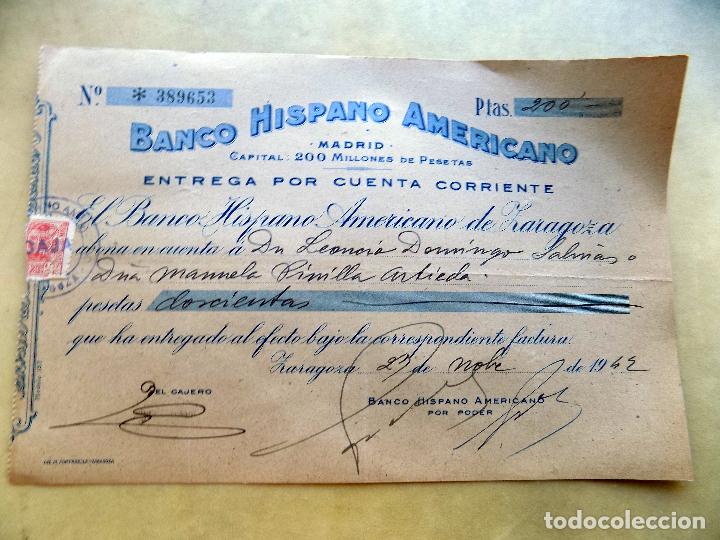 Nº * 389653 Ptas. 200
BANCO HISPANO AMERICANO
· MADRID ·
CAPITAL: 200 MILLONES DE PESETAS
ENTREGA POR CUENTA CORRIENTE
El Banco Hispano Americano de Zaragoza
abona en cuenta á Dn Leoncio Domingo Salinas o
Dña Manuela Pinilla Artieda.
pesetas doscientas
que ha entregado al efecto bajo la correspondiente factura.
Zaragoza 27 de Nobe de 1942
DEL CAJERO
BANCO HISPANO AMERICANO
POR PODER
CAJA
todocoleccion.net